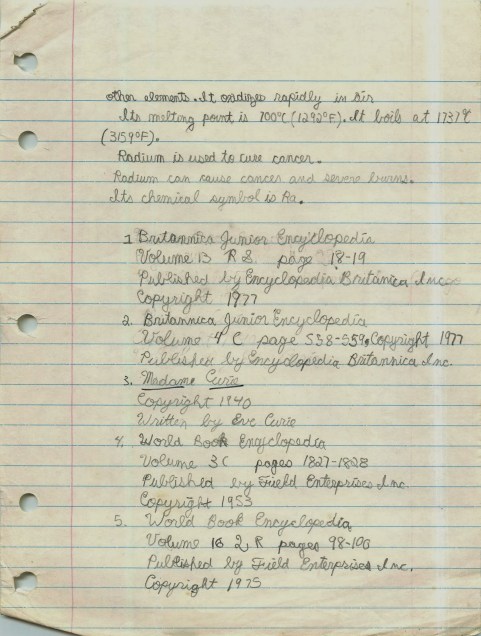 other elements. It oxidizes rapidly in air
Its melting point is 700°C (1292°F). It boils at 1737°C
(3159°F).
Radium is used to cure cancer.
Radium can cause cancer and severe burns.
Its chemical symbol is Ra.
1 Britannica Junior Encyclopedia
Volume 13 R S page 18-19
Published by Encyclopedia Britanica Inc.
Copyright 1977
2. Britannica Junior Encyclopedia
Volume 4 C page 558-559, Copyright 1977
Published by Encyclopedia Britannica Inc.
3. Madame Curie
Copyright 1940
Written by Eve Curie
4. World Book Encyclopedia
Volume 3 C pages 1827-1828
Published by Field Enterprises Inc.
Copyright 1953
5. World Book Encyclopedia
Volume 16 R pages 98-100
Published by Field Enterprises Inc.
Copyright 1975